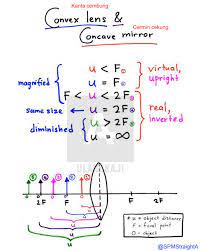 Kanta cembung
Convex lens &
Cermin cekung
Concave mirror
magnified
u < F
virtual, upright
u = F
F < u < 2F
same size
u = 2F
real, inverted
diminished
u > 2F
u = ∞
2F
F
F
2F
u
u
u
u
* u = object distance
F = focal point
O = object
@SPMStraightA